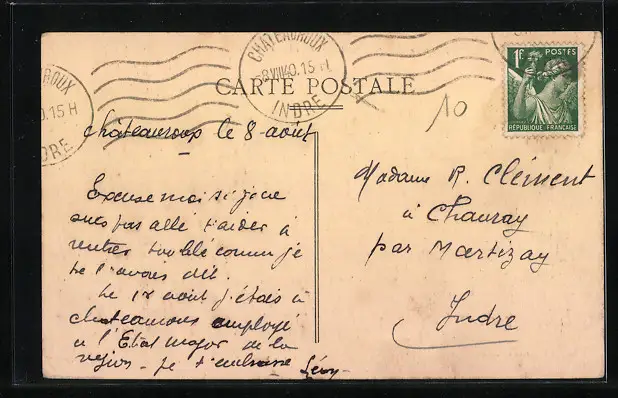 CHATEAUROUX
8 VIII 40. 15 H
INDRE
CARTE POSTALE
1F POSTES
RÉPUBLIQUE FRANÇAISE
10
Châteauroux le 8 août
Excuse moi si je ne
suis pas allé t'aider à
rentrer ton blé comme je
te l'avais dit.
Le 1er août j'étais à
chateauroux employé
à l'Etat Major de la
région - je t'embrasse Léon
Madame R. Clément
à Chauray
par Martizay
Indre